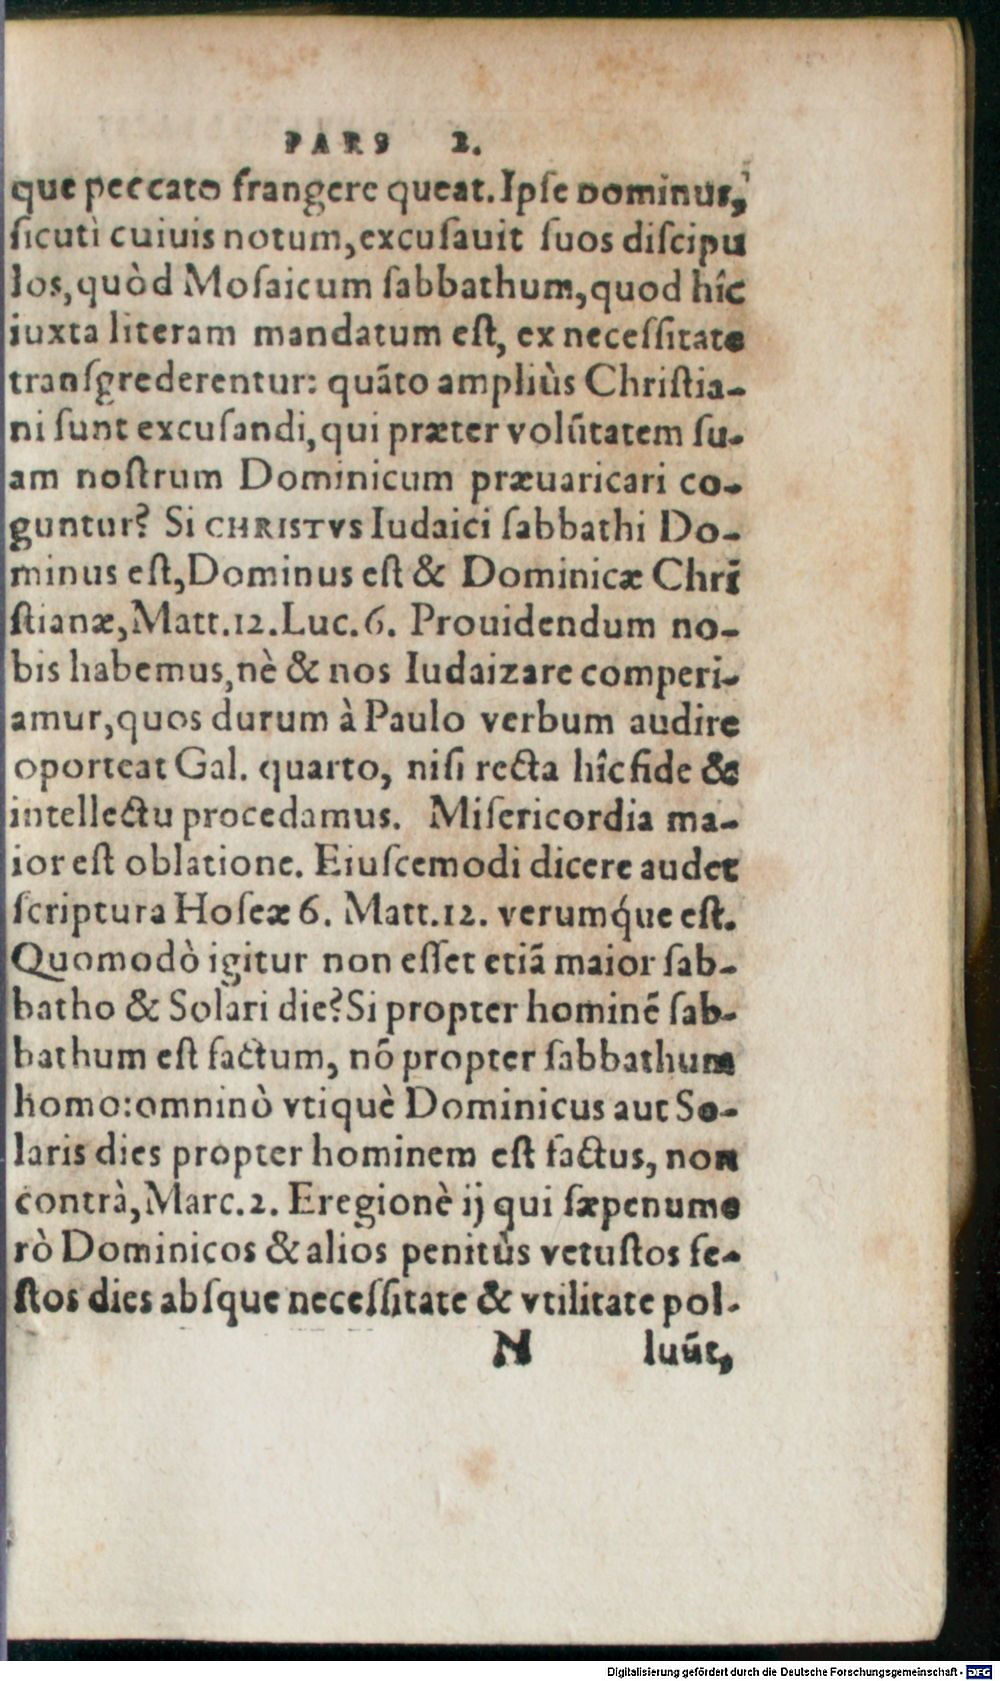 PARS 2.
que peccato frangere queat. Ipse DOMINUS,
sicuti cuiuis notum, excusauit suos discipu
los, quòd Mosaicum sabbathum, quod hîc
iuxta literam mandatum est, ex necessitate
transgrederentur: quãto ampliùs Christia-
ni sunt excusandi, qui præter volũtatem su-
am nostrum Dominicum præuaricari co-
guntur? Si CHRISTVS Iudaici sabbathi Do-
minus est, Dominus est & Dominicæ Chri
stianæ, Matt.12. Luc.6. Prouidendum no-
bis habemus, nè & nos Iudaizare comperi-
amur, quos durum à Paulo verbum audire
oporteat Gal. quarto, nisi recta hîc fide &
intellectu procedamus. Misericordia ma-
ior est oblatione. Eiuscemodi dicere audet
scriptura Hoseæ 6. Matt.12. verumq́ue est.
Quomodò igitur non esset etiã maior sab-
batho & Solari die? Si propter hominẽ sab-
bathum est factum, nõ propter sabbathum
homo: omninò vtiquè Dominicus aut So-
laris dies propter hominem est factus, non
contrà, Marc.2. Eregionè ij qui sæpenume
rò Dominicos & alios penitùs vetustos fe-
stos dies absque necessitate & vtilitate pol-
N luũt,
Digitalisierung gefördert durch die Deutsche Forschungsgemeinschaft - DFG